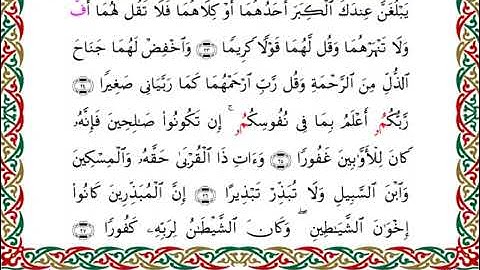 يَبْلُغَنَّ عِندَكَ ٱلْكِبَرَ أَحَدُهُمَا أَوْ كِلَاهُمَا فَلَا تَقُل لَّهُمَا أُفَّ
وَلَا تَنْهَرْهُمَا وَقُل لَّهُمَا قَوْلًا كَرِيمًا ٢٣ وَٱخْفِضْ لَهُمَا جَنَاحَ
ٱلذُّلِّ مِنَ ٱلرَّحْمَةِ وَقُل رَّبِّ ٱرْحَمْهُمَا كَمَا رَبَّيَانِى صَغِيرًا ٢٤
رَّبُّكُمُۥ أَعْلَمُ بِمَا فِى نُفُوسِكُمُۥ ۚ إِن تَكُونُوا۟ صَـٰلِحِينَ فَإِنَّهُۥ
كَانَ لِلْأَوَّٰبِينَ غَفُورًا ٢٥ وَءَاتِ ذَا ٱلْقُرْبَىٰ حَقَّهُۥ وَٱلْمِسْكِينَ
وَٱبْنَ ٱلسَّبِيلِ وَلَا تُبَذِّرْ تَبْذِيرًا ٢٦ إِنَّ ٱلْمُبَذِّرِينَ كَانُوٓا۟
إِخْوَٰنَ ٱلشَّيَـٰطِينِ ۖ وَكَانَ ٱلشَّيْطَـٰنُ لِرَبِّهِۦ كَفُورًا ٢٧